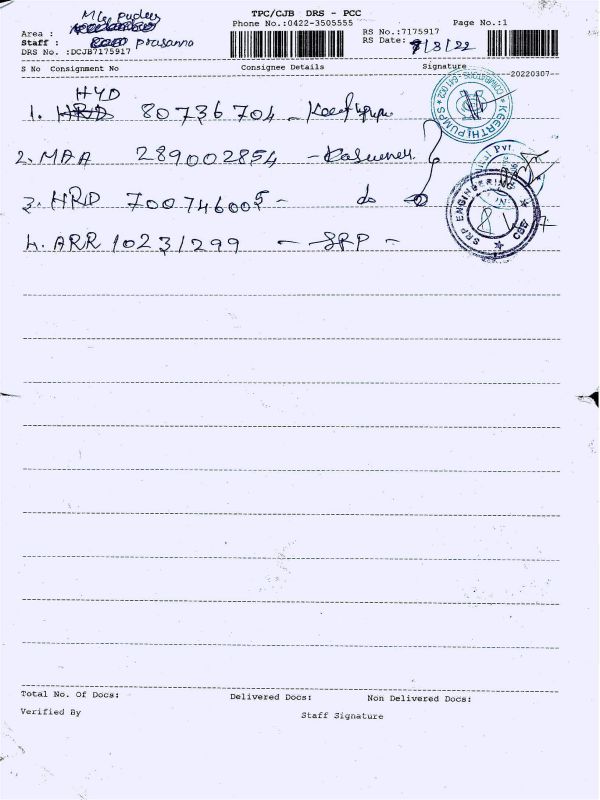 TPC/CJB DRS - PCC
Phone No.:0422-3505555
Page No.:1
Area :
Staff : prasanna
RS No.:7175917
RS Date: 8/8/22
DRS No. :DCJB7175917
S No Consignment No Consignee Details Signature
20220307
HYD
1. 80736704 -
2. MAA 289002854 -
3. HRD 700746005 - do
4. ARR 10231299 - SRP -
KEERTHI PUMPS
COIMBATORE
Pvt.
SRP ENGINEERING
Total No. Of Docs: Delivered Docs: Non Delivered Docs:
Verified By Staff Signature